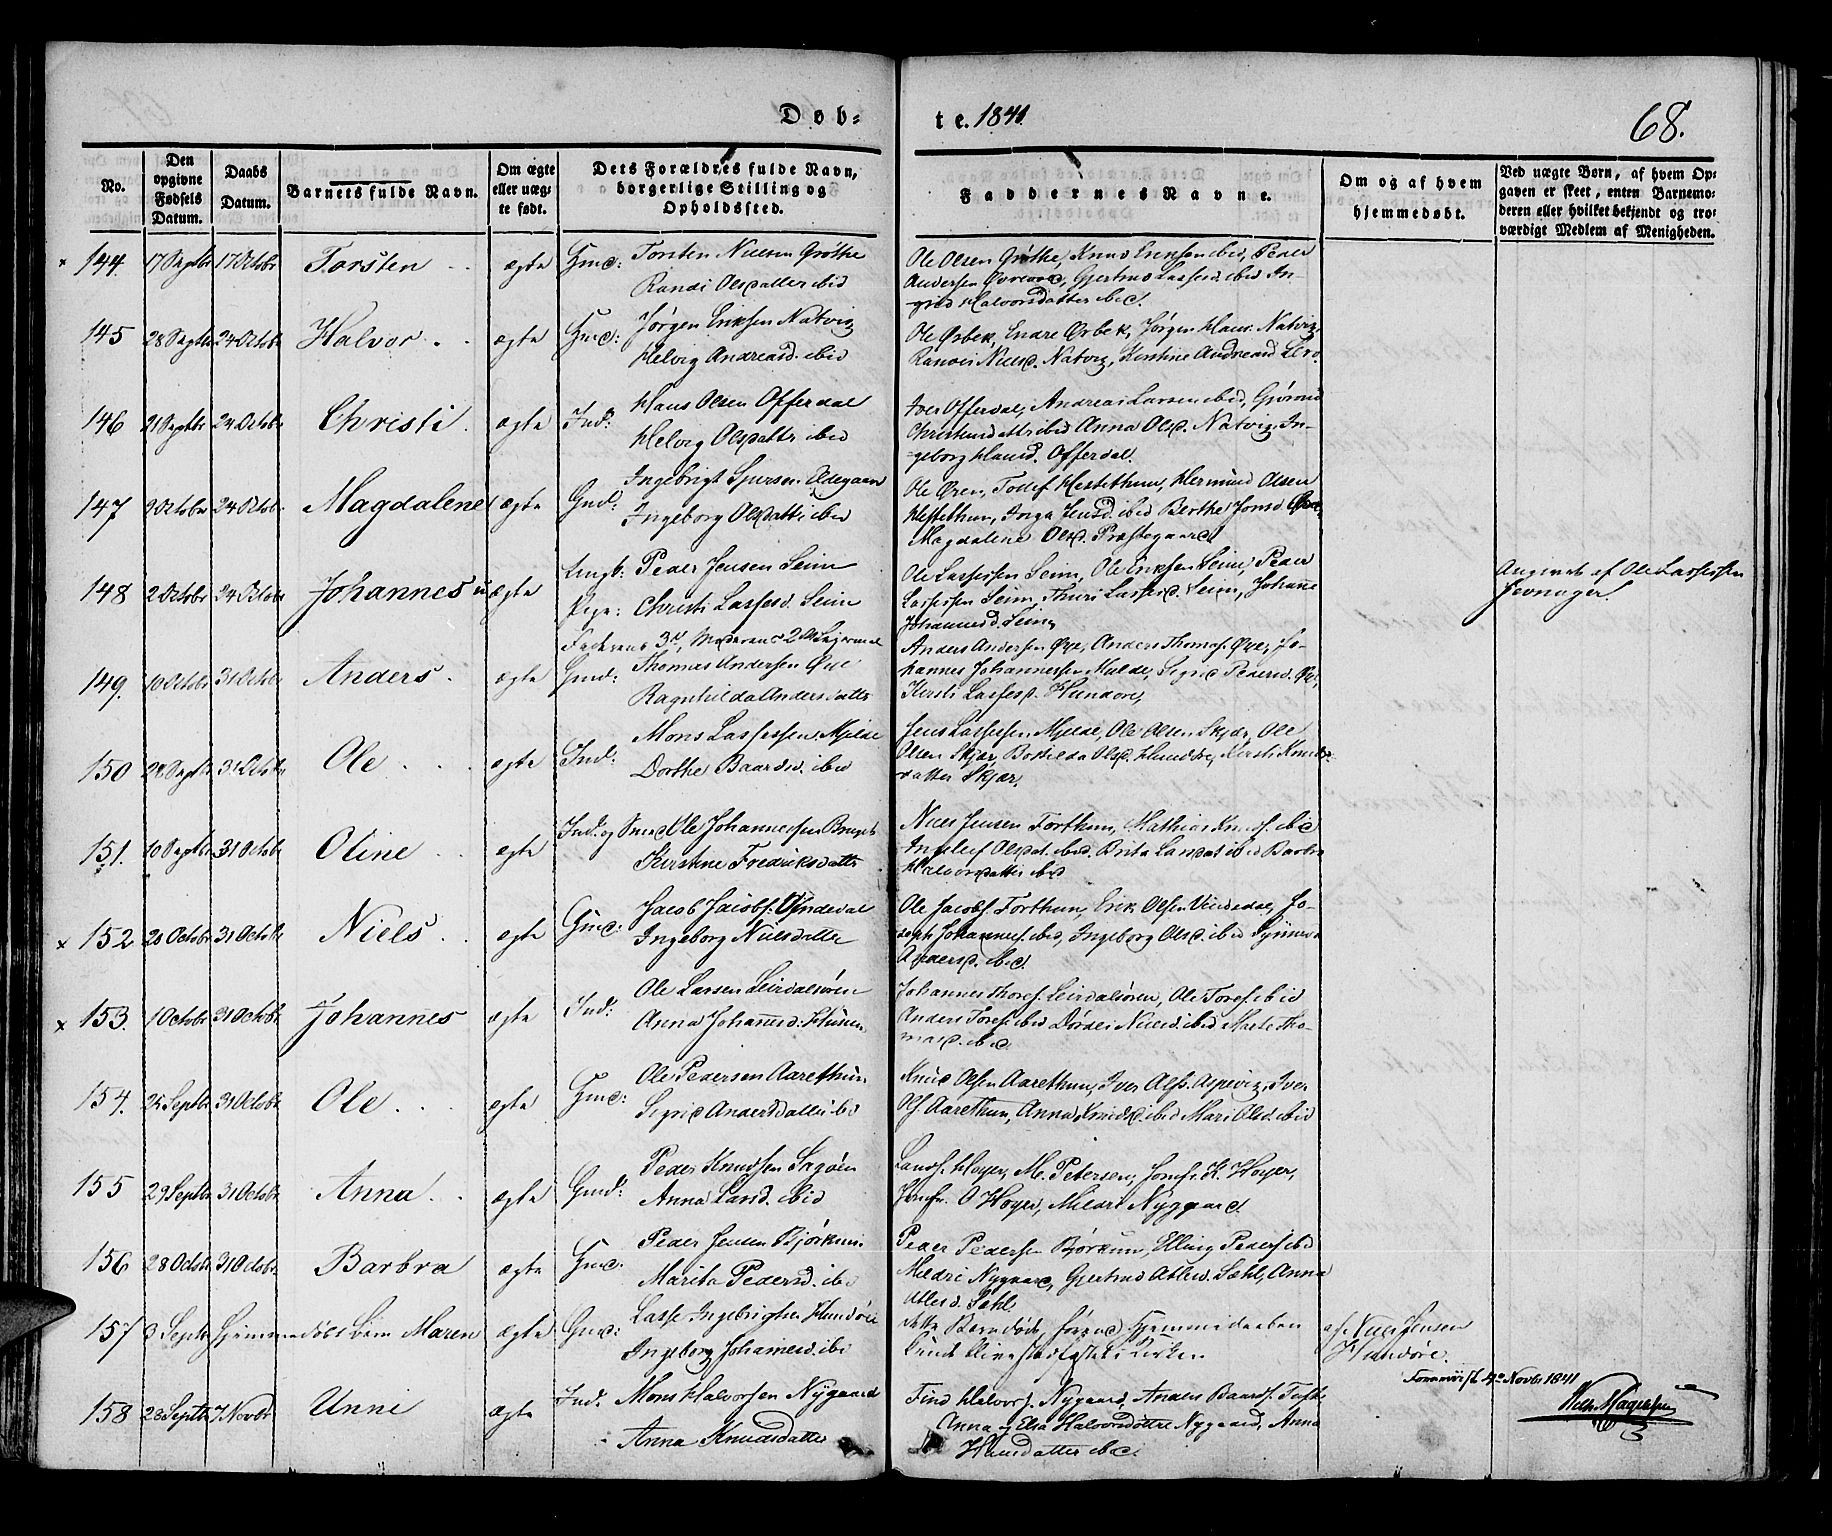 Døb=
te. 1841
68.
No.
Den opgivne Fødsels Datum.
Daabs Datum.
Barnets fulde Navn.
Om ægte eller uægte født.
Dets Forældres fulde Navn, borgerlige Stilling og Opholdssted.
Faddernes Navne.
Om og af hvem hjemmedøbt.
Ved uægte Børn, af hvem Opgaven er skeet, enten Barnemoderen eller hvilket bekjendt og troværdigt Medlem af Menigheden.
× 144. 17 Septbr 17 Octobr Torsten ægte Gmd: Torsten Nielsen Grøthe
Randi Olsdatter ibid
Ole Olsen Grøthe, Knud Eriksen ibid, Peder
Andersen Gjertrud Lassesd ibid In-
grid Halvorsdatter ibid.
145 28 Septbr 24 Octobr Halvor ægte Gmd: Jørgen Eriksen Natvig
Helvig Andreasd. ibid
Ole Ørbek, Endre Ørbek, Jørgen Hans. Natvig,
Ranvei Nielsd. Natvig, Kirstine Andreasd
146 21 Septbr 24 Octobr Christi ægte Ind: Hans Olsen Offerdal
Helvig Olsdattr ibid
Iver Offerdal, Andreas Larsen ibid, Gjøron
Christensdattr ibid Anna Olsd. Natvig, In-
geborg Hansd. Offerdal.
147 9 October 24 Octobr Magdalene ægte Gmd: Ingebrigt Sjursen
Ingeborg Olsdattr ibid
Ole Øren, Tollef Hestethun, Hermund Olsen
Hestethun, Inga Jensd. ibid Berthe Jonsd
Magdalene Olsd. Præstegaard
148 2 Octobr 24 Octobr Johannes uægte Ungk: Peder Jensen Seim
Pige: Christi Lassesd. Seim
Faderens 3die, Moderens 2det Leiermaal
Ole Lassessen Seim, Ole Eriksen Seim, Peder
Lassessen Seim, Thuri Lassesd. Seim, Johanne
Johannesd. Seim
Angivet af Ole Lassessen
149. 10 Octobr 31 Octobr Anders ægte Gmd: Thomas Andersen Øve
Ragnhilda Andersdattr
Anders Andersen Øve, Anders Thomas. Øve, Jo-
hannes Johannessen Sigrid Pedersd.
Kirsti Lassesd. Hundøre,
150 28 Septbr 31 Octobr Ole ægte Ind: Mons Lassessen Mjelde
Dorthe Baardsd. ibid
Jens Lassessen Mjelde, Ole Olsen Skjær, Ole
Olsen Skjær, Bothilda Olsd. Kirsti Knuds-
datter Skjær,
151. 10 Septbr 31 Octobr Oline ægte Ind: og Ole Johannessen
Kirstine Fredriksdattr
Niels Jensen Forthun, Mathias Knuds. ibid
Olsdat. ibid. Brita Lassdat ibid Barbra
Halvorsdatter ibid
× 152 20 Octobr 31 Octobr Niels ægte Gmd: Jacob Jacobs.
Ingeborg Nielsdatter
Ole Jacobs. Forthun, Erik Olsen Jo-
seph Johannes. ibid, Ingeborg Olsd. ibid Synneva
ibid.
× 153. 1 Octobr 31 Octobr Johannes ægte Ind: Ole Larsen Leirdalsøren
Anna Johannesd:
Johannes Thores. Leirdalsøren, Ole Tores. ibid
Anders Tores. ibid Dørdei Nielsd. ibid Marte Tho-
masd. ibid.
154. 25 Septbr 31 Octobr Ole ægte Gmd: Ole Pedersen Aarethun
Sigrid Andersdattr ibid
Knud Olsen Aarethun, Iver Olss. Aspevig, Iver
Ols. Aarethun, Anna Knudsd. ibid Mari Olsd. ibid
155 29 Septbr 31 Octobr Anna ægte Gmd: Peder Knudsen
Anna Larsd. ibid
Høyer, M. Petersen, Jomfr. K. Høyer,
Jomfr. O Høyer, Mildri Nygaard.
156 28 Octobr 31 Octobr Barbra ægte Gmd: Peder Jensen Bjørkum
Marita Pedersd. ibid
Peder Pedersen Bjørkum, Elling Peders. ibid
Mildri Nygaard, Gjertrud Atlesd. Sæhl, Anna
Atlesd. Sæhl
157 3 Septbr Hjemmedøbt Barn Maren ægte Gmd: Lasse Ingebrigtsen Hundøre
Ingeborg Johannesd. ibid
dette Barn døde, førend Hjemmedaaben
kunde blive stadfæstet i Kirken
af Niels Jensen
Hundøre.
4de Novbr 1841
158 28 Septbr 7 Novbr Unni ægte Ind: Mons Halvorsen Nygaard
Anna Knudsdatter
Find Halvors. Nygaard, Anders Baards.
Anna og Elsa Halvorsdøttre Nygaard, Anna
Hansdatter ibid.